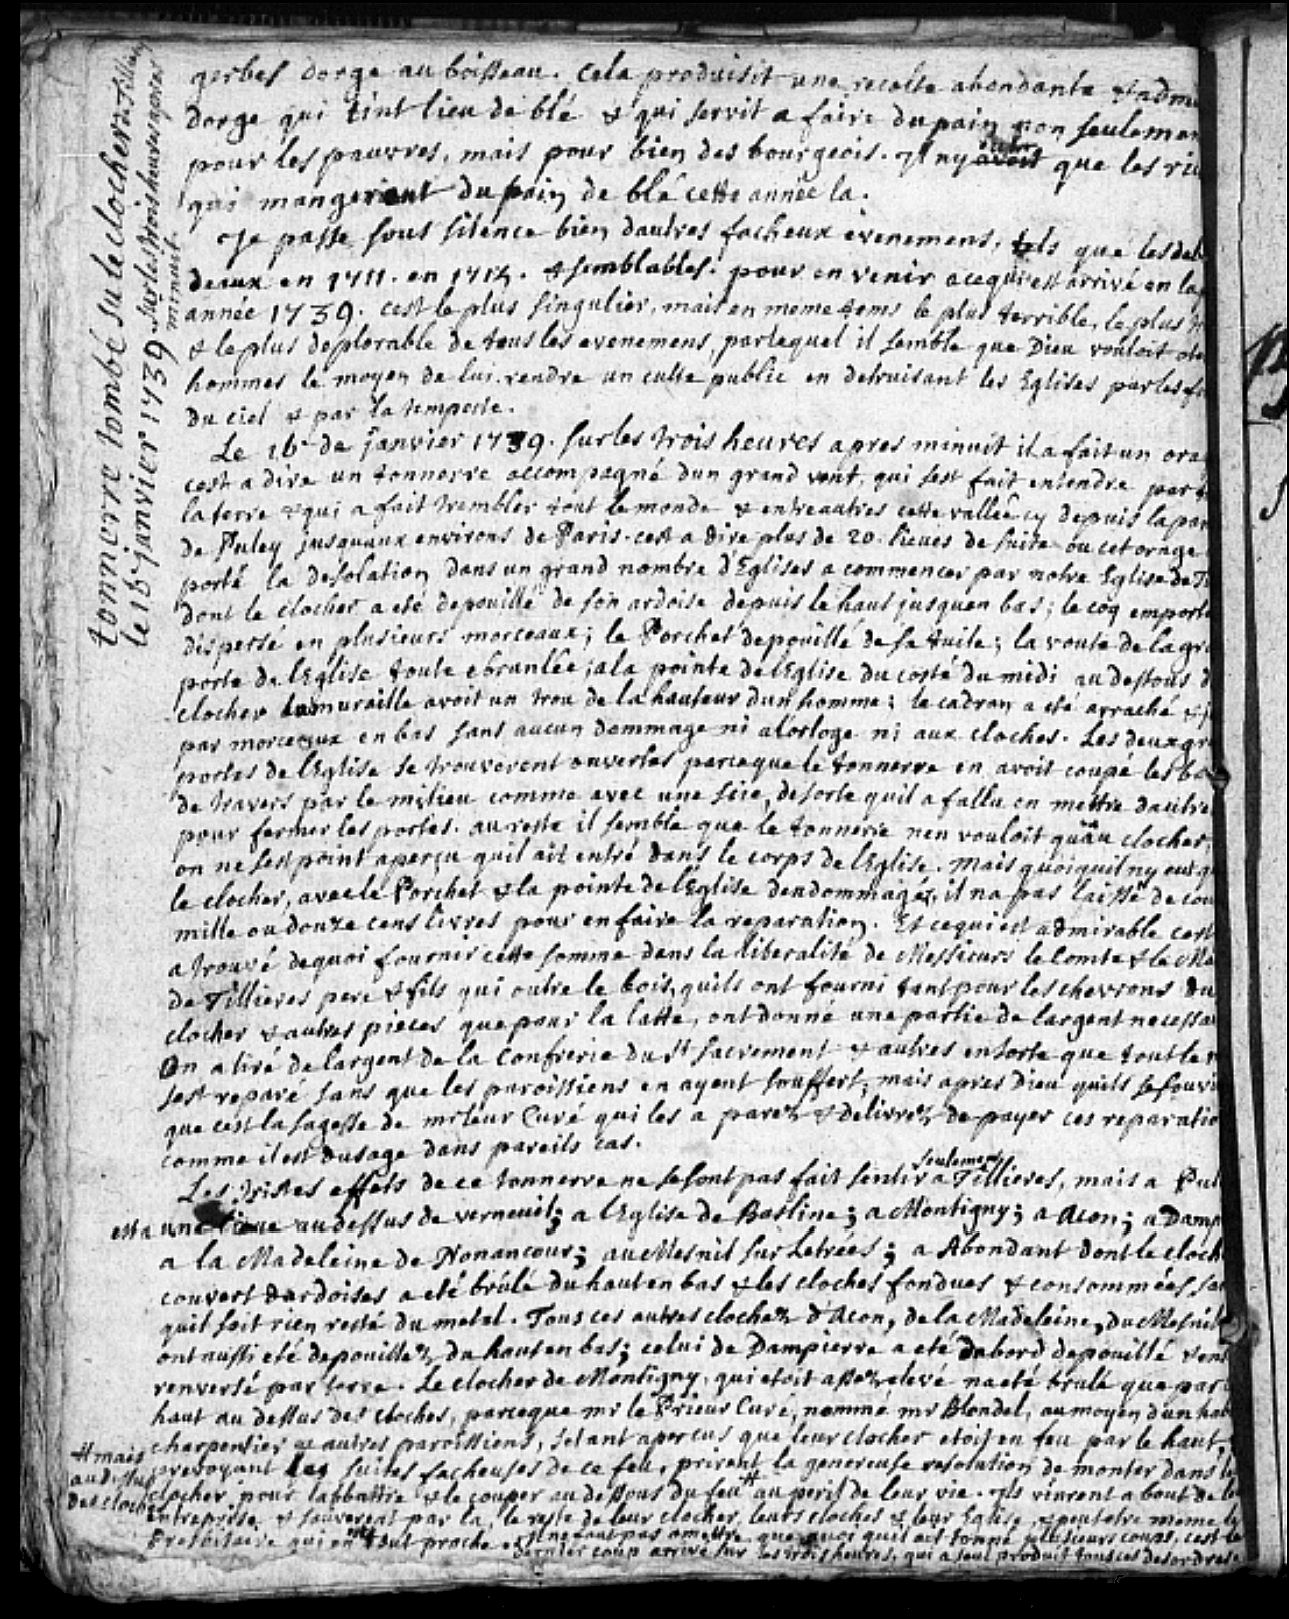 tonnerre tombé su le clocher de Tillieres
le 16e janvier 1739 sur les trois heures apres
minuit.
gerbes dorge au boisseau. Cela produisit une recolte abondante &
dorge qui tint lieu de blé & qui servit a faire du pain non seulemen
pour les pauvres, mais pour bien des bourgeois. Il ny avoit que les ric
qui mangerent du pain de blé cette année la.
Je passe sous silence bien dautres facheux evenemens, tels que les deb
deaux en 1711. en 1712. & semblables. pour en venir a cequi est arrivé en la
année 1739. cest le plus singulier, mais en meme tems le plus terrible, le plus
& le plus deplorable de tous les evenemens, par lequel il semble que Dieu vouloit ote
hommes le moyen de lui rendre un culte public en detruisant les Eglises par les fe
du ciel & par la tempeste.
Le 16e de janvier 1739. sur les trois heures apres minuit il a fait un ora
cest a dire un tonnerre accompagné dun grand vent, qui sest fait entendre par
la terre & qui a fait trembler tout le monde & entreautres cette vallée cy depuis la par
de Puley jusquaux environs de Paris. cest a dire plus de 20. lieues de suite ou cet orage
porté la desolation dans un grand nombre d'Eglises a commencer par notre Eglise de Ti
dont le clocher a eté depouillé de son ardoise depuis le haut jusquen bas; le coq emporté
dispersé en plusieurs morceaux; le Porchet depouillé de sa tuile; la voute de la gr
porte de lEglise toute ebranlée; a la pointe de lEglise du costé du midi au dessous d
clocher la muraille avoit un trou de la hauteur dun homme; le cadran a eté arraché & j
par morceaux en bas sans aucun dommage ni a lorloge ni aux cloches. Les deux gr
portes de lEglise se trouverent ouvertes parceque le tonnerre en avoit coupé les ba
de travers par le milieu comme avec une scie, desorte quil a fallu en mettre dautre
pour fermer les portes. au reste il semble que le tonnerre nen vouloit quau clocher,
on ne sest point aperçu quil ait entré dans le corps de lEglise. Mais quoiquil ny eut qu
le clocher, avec le Porchet & la pointe de lEglise dendommagés, il na pas laissé de cou
mille ou douze cens livres pour en faire la reparation. Et cequi est admirable cest
a trouvé dequoi fournir cette somme dans la liberalité de Messieurs le Comte & le Ma
de Tillieres pere & fils qui outre le bois, quils ont fourni tant pour les chevrons du
clocher & autres pieces que pour la latte, ont donné une partie de largent necessa
On a tiré de largent de la Confrerie du St Sacrement & autres ensorte que tout le
sest reparé sans que les paroissiens en ayent souffert; mais apres Dieu quils se souvi
que cest la sagesse de mr leur Curé qui les a parez & delivrez de payer ces reparatio
comme il est dusage dans pareils cas.
Les tristes effets de ce tonnerre ne se sont pas fait sentir seulement a Tillieres, mais a Pul
est a une lieue au dessus de verneuil; a lEglise de Basline; a Montigny; a Acon; a Damp
a la Madeleine de Nonancour; au Mesnil sur Letrées; a Abondant dont le cloch
couvert dardoises a eté brulé du haut en bas & les cloches fondues & consommées sa
quil soit rien resté du metal. Tous ces autres clochez d'Acon, de la Madeleine, du Mesnil
ont aussi eté depouillez du haut en bas; celui de Dampierre a eté dabord depouillé & en
renversé par terre. Le clocher de Montigny, qui etoit assez elevé na eté brulé que par
haut au dessus des cloches, parceque mr le Prieur Curé, nommé mr Blondel, au moyen dun hab
charpentier & autres paroissiens, setant apercus que leur clocher etoit en feu par le haut,
prevoyant les suites facheuses de ce feu, prirent la genereuse resolution de monter dans le
clocher pour labbattre & le couper au dessous du feu # au peril de leur vie. Ils vinrent a bout de le
entreprise & sauverent par la le reste de leur clocher, leurs cloches & leur Eglise & peutetre meme le
Presbitaire qui en est tout proche. Il ne faut pas omettre que quoi quil ait tonné plusieurs coups, cest le
dernier coup arrivé sur les trois heures, qui a seul produit tous ces desordres.
# mais
au dessus
des cloches